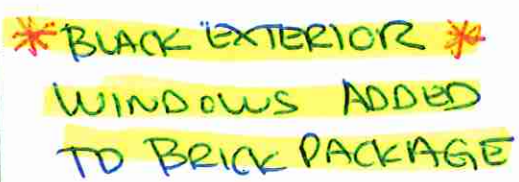 * BLACK EXTERIOR *
WINDOWS ADDED
TO BRICK PACKAGE